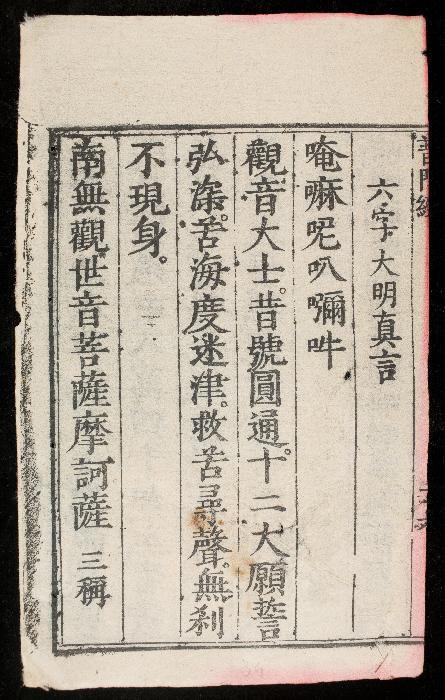 普門經
六字大明真言
唵嘛呢叭嘛吽
觀音大士。昔號圓通。十二大願誓
弘深。苦海度迷津。救苦尋聲。無刹
不現身。
南無觀世音菩薩摩訶薩 三稱